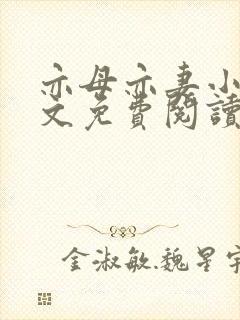 亦母亦妻小
文免費閱讀
金淑敏魏星宇